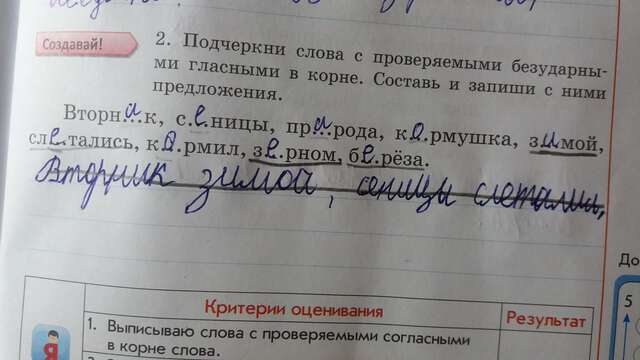 Создавай!
2. Подчеркни слова с проверяемыми безударны-
ми гласными в корне. Составь и запиши с ними
предложения.
Вторни..к, с.е.ницы, при.рода, к.о.рмушка, зимой,
сле.тались, ко.рмил, зе.рном, бе.рёза.
Вторник зимой, синицы слетались,
Критерии оценивания
Результат
1. Выписываю слова с проверяемыми согласными
в корне слова.
До
5